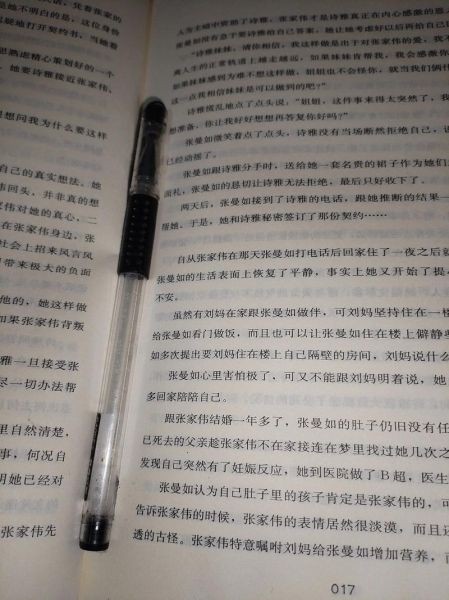 话，凭着张家的
是她不明白的是，这位身份
疑地打开契约书，当她看
思熟虑精心策划好的一个
，她要诗雅接近张家伟，
想问我为什么要这样
自己的真实想法。她
伟回头，并非真的想
家伟对她的真心，二
在张家伟身边，张
社会上招来风言风
带来极大的负面
他的，她这样做
如果张家伟背叛
雅一旦接受张
尽一切办法帮
里自然清楚，
事，何况自
明她已经对
张家伟先
人为主暗中资助了诗雅，张家伟才是诗雅真正在内心感激的恩
张曼如没有急于要诗雅给自己答案，她让她考虑好以后再给自己
“诗雅妹妹，请你相信，我这样做是出于对张家伟的爱，我不
离人生的正常轨道上越走越远，如果妹妹肯帮我，我会感激你
如果妹妹感到为难不想这样做，姐姐也不会怪你，就当我们俩什
这一点我相信妹妹是可以做到的吧？”
诗雅慌乱地点了点头说，“姐姐，这件事来得太突然了，我
想准备，你让我好好想想再答复你好吗？”
张曼如微笑着点了点头，诗雅没有当场断然拒绝自己，说
已经动摇了。
张曼如跟诗雅分手时，送给她一套名贵的裙子作为她们
面礼，张曼如的恳切让诗雅无法拒绝，最后只好收下了。
两天后，张曼如接到了诗雅的电话，跟她推断的结果一
帮她。于是，她和诗雅秘密签订了那份契约……
自从张家伟在那天张曼如打电话后回家住了一夜之后就
张曼如的生活表面上恢复了平静，事实上她又开始了提心
不安。
虽然有刘妈在家跟张曼如做伴，可刘妈坚持住在一楼
给张曼如看门做饭，而且也可以让张曼如住在楼上僻静
如多次提出要刘妈住在楼上自己隔壁的房间，刘妈说什么
张曼如心里害怕极了，可又不能跟刘妈明着说，她
多回家陪陪自己。
跟张家伟结婚一年多了，张曼如的肚子仍旧没有任
已死去的父亲趁张家伟不在家接连在梦里找过她几次之
发现自己突然有了妊娠反应，她到医院做了B超，医生
张曼如认为自己肚子里的孩子肯定是张家伟的，可
告诉张家伟的时候，张家伟的表情居然很淡漠，而且还
透的古怪。张家伟特意嘱咐刘妈给张曼如增加营养，而
017